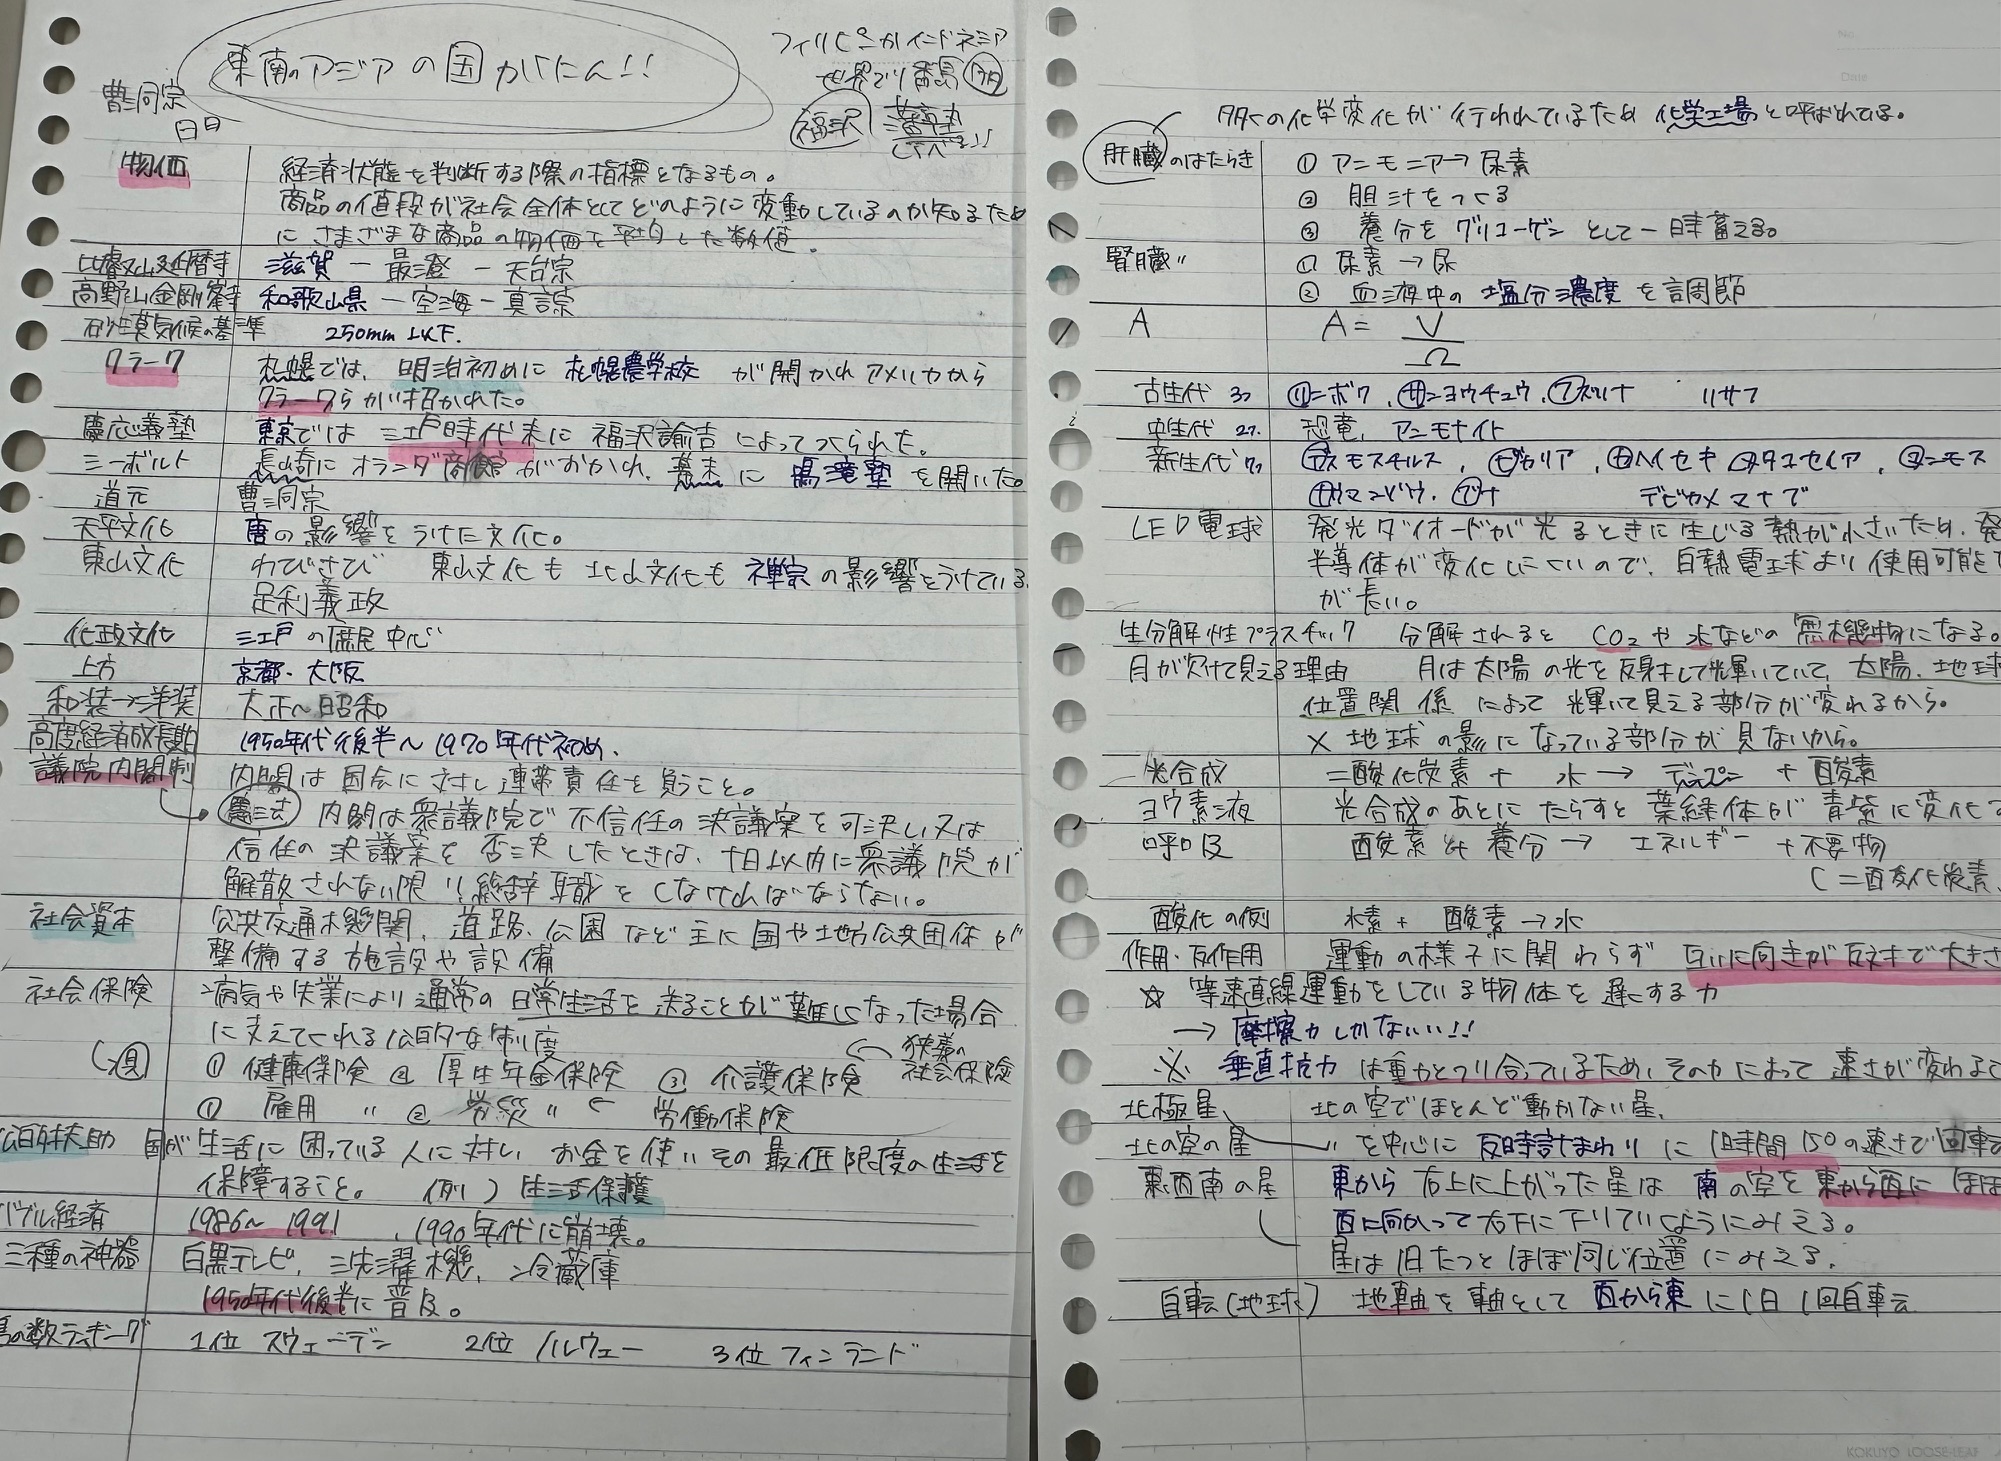 東南のアジアの国がにん!!
フィリピンかインドネシア
世界で1番島
曹洞宗
福沢
物価 経済状態を判断する際の指標となるもの。
商品の値段が社会全体としてどのように変動しているのか知るため
にさまざまな商品の物価を平均した数値。
比叡山延暦寺 滋賀 ー 最澄 ー 天台宗
高野山金剛峯寺 和歌山県 ー 空海 ー 真言宗
砂漠気候の基準 250mm以下.
クラーク 札幌では、明治初めに 札幌農学校 が開かれ アメリカから
クラークらが招かれた。
慶応義塾 東京では 江戸時代末に 福沢諭吉 によってつくられた。
シーボルト 長崎に オランダ商館 がおかれ、幕末 に 鳴滝塾 を開いた。
道元 曹洞宗
天平文化 唐の影響をうけた文化。
東山文化 わびさび 東山文化も 北山文化も 禅宗 の影響をうけている
足利義政
化政文化 江戸の庶民中心
上方 京都・大阪
和装→洋装 大正~昭和
高度経済成長期 1950年代後半~1970年代初め.
議院内閣制 内閣は国会に対し連帯責任を負うこと。
憲法 内閣は衆議院で不信任の決議案を可決し又は
信任の決議案を否決したときは、十日以内に衆議院が
解散されない限り総辞職をしなければならない。
社会資本 公共交通機関、道路、公園 など主に国や地方公共団体が
整備する施設や設備
社会保険 病気や失業により通常の日常生活を送ることが難しくなった場合
に支えてくれる公的な制度
狭義の
① 健康保険 ② 厚生年金保険 ③ 介護保険 社会保険
① 雇用 〃 ② 労災 〃 労働保険
公的扶助 国が生活に困っている人に対し お金を使い その最低限度の生活を
保障すること。 例) 生活保護
バブル経済 1986~1991 、1990年代に崩壊。
三種の神器 白黒テレビ、洗濯機、冷蔵庫
1950年代後半に普及。
島の数ランキング 1位 スウェーデン 2位 ノルウェー 3位 フィンランド
多くの化学変化が行われているため 化学工場 と呼ばれている。
肝臓のはたらき ① アンモニア→尿素
② 胆汁をつくる
③ 養分をグリコーゲンとして一時蓄える。
腎臓 〃 ① 尿素→尿
② 血液中の 塩分濃度 を調節
A A= V/Ω
古生代 3つ
中生代 2つ. 恐竜, アンモナイト
新生代
デビカメマナで
LED電球 発光ダイオードが光るときに生じる熱が小さいため、発
半導体が変化しにくいので、白熱電球より使用可能
が長い。
生分解性プラスチック 分解されると CO2や水などの無機物になる。
月が欠けて見える理由 月は太陽の光を反射して輝いていて、太陽、地球
位置関係 によって 輝いて見える部分が変れるから。
× 地球の影になっている部分が見ないから。
光合成 二酸化炭素 + 水 → デンプン + 酸素
ヨウ素液 光合成のあとにたらすと葉緑体が青紫に変化す
呼吸 酸素 + 養分 → エネルギー + 不要物
(二酸化炭素、
酸化の例 水素 + 酸素 → 水
作用・反作用 運動の様子に関わらず 互いに向きが反対で大きさ
☆ 等速直線運動をしている物体を遅くする力
→ 摩擦力しかないい!!
※ 垂直抗力 は重力とつり合っているため、その力によって 速さが変わるこ
北極星 北の空でほとんど動かない星.
北の空の星 〃 を中心に 反時計まわり に 1時間15°の速さで回転
東西南の星 東から右上に上がった星は 南の空を東から西に ほぼ
西に向かって右下に下りていくようにみえる。
星は1日たつとほぼ同じ位置にみえる.
自転(地球) 地軸を軸として 西から東に1日1回自転
KOKUYO LOOSE-LEAF